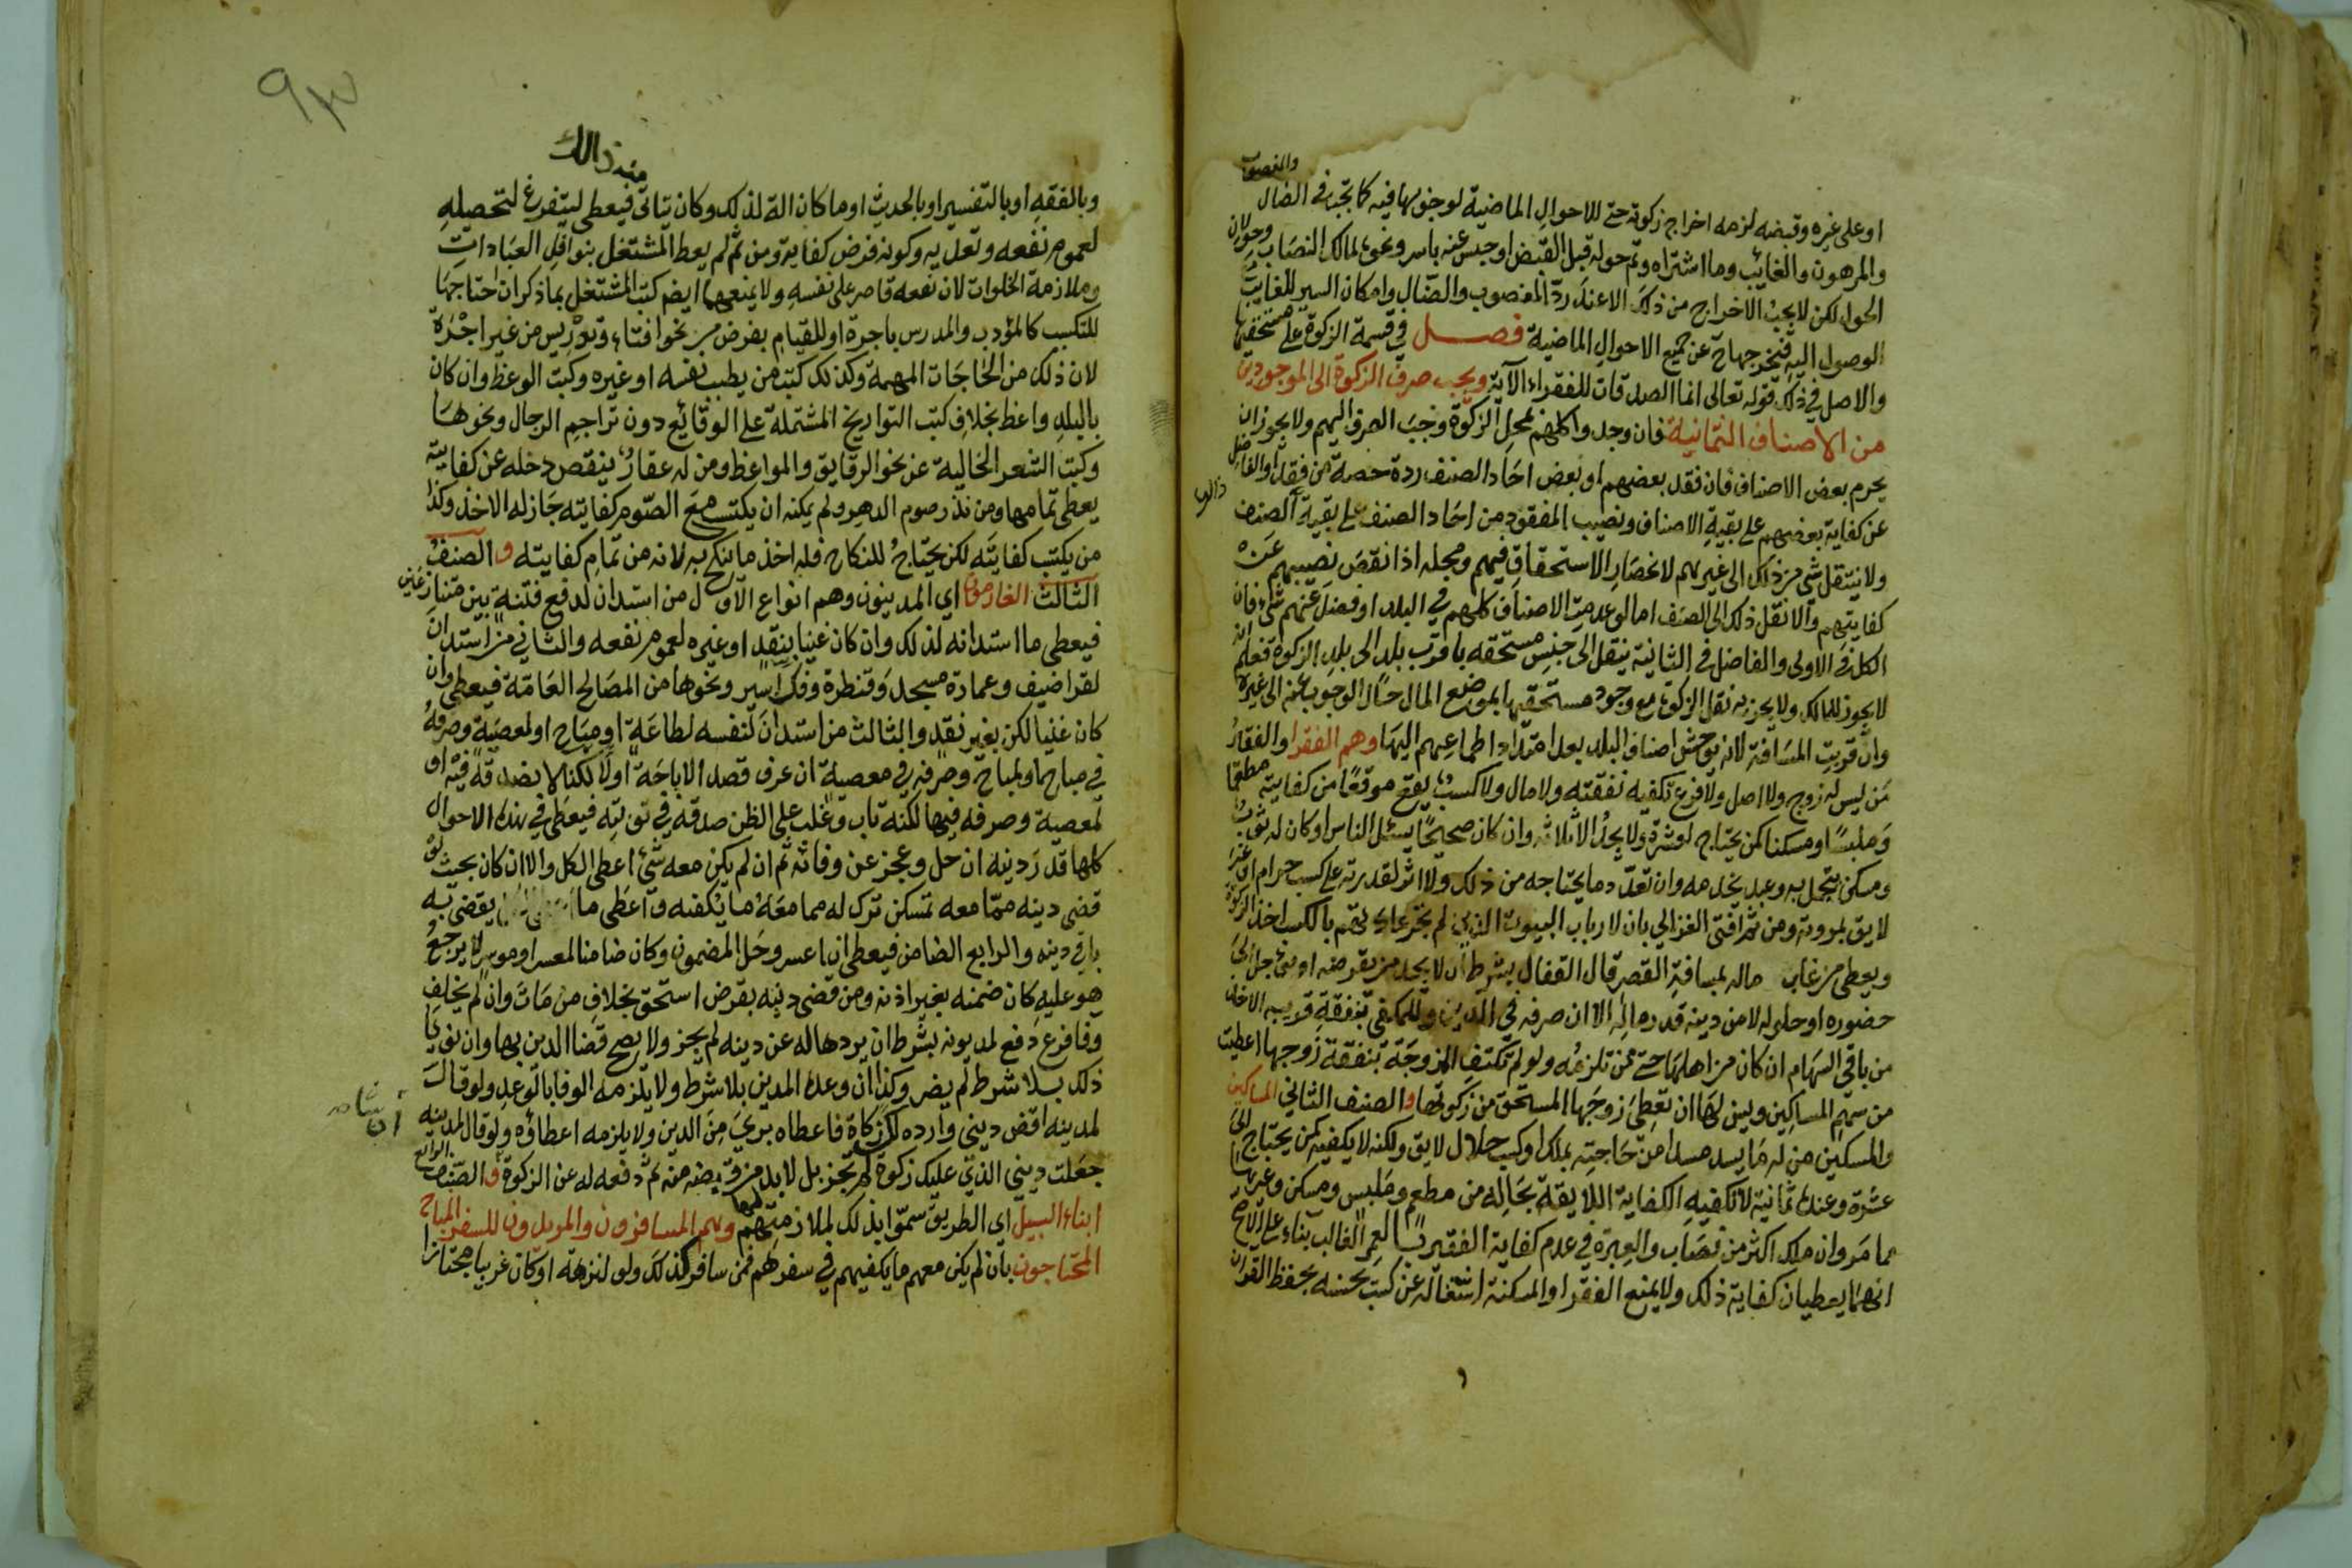 او على غيره وقبضه لزمه اخراج زكوته حتى للاحوال الماضية لوجوبها فيه كما تجب في الضال والمغصوب
والمرهون والغائب وما اشتراه وتم حوله قبل القبض او حبس عنه باسر ونحوه لمالك النصاب وحولان
الحول لكن لا يجب الاخراج من ذلك الا عند ردّ المغصوب والضال وامكان السير للغايب
الوصول اليه فيخرجها ح عن جميع الاحوال الماضية فصل في قسمة الزكوة على مستحقيها
والاصل في ذلك قوله تعالى انما الصدقات للفقراء الآية ويجب صرف الزكوة الى الموجودين
من الاصناف الثمانية فان وجدوا كلهم بمحل الزكوة وجب الصرف اليهم ولا يجوز ان
يحرم بعض الاصناف فان فقد بعضهم او بعض احاد الصنف ردة حصة من فقد او الفاضل
عن كفاية بعضهم على بقية الاصناف ونصيب المفقود من احاد الصنف على بقية الصنف
ولا ينتقل شي من ذلك الى غيرهم لانحصار الاستحقاق فيهم ومحله اذا نقص نصيبهم عن
كفايتهم والا نقل ذلك الى الصنف اما لو عدمت الاصناف كلهم في البلد او فضل عنهم شي فان
الكل في الاولى والفاضل في الثانية ينقل الى جنس مستحقه باقرب بلد الى بلد الزكوة فعلم انه
لا يجوز للمالك ولا يجزيه نقل الزكوة مع وجود مستحقيها بموضع المال حال الوجوب عنه الى غيره
وان قربت المسافة لانه يوحش اصناف البلد بعد امتداد اطماعهم اليها وهم الفقرا والفقير
من ليس له زوج ولا اصل ولا فرع تكفيه نفقته ولا مال ولا كسب يقع موقعا من كفايته مطعما
وملبسا ومسكنا كمن يحتاج لعشرة ولا يجد الا ثلاثة وان كان صحيحا يسئل الناس او كان له ثوب
ومسكن يتجمل به وعبد يخدمه وان تعدد ما يحتاجه من ذلك ولا اثر لقدرته على كسب حرام او غير
لايق بمروته ومن ثم افتى الغزالي بان لارباب البيوت الذين لم تجر عادتهم بالكسب اخذ الزكوة
ويعطى من غاب ماله لمسافة القصر قال القفال بشرط ان لا يجد من يقرضه او دينه مؤجل الى
حضوره او حلوله لا من دينه قدر ماله الا ان صرفه في الدين وللمكفي بنفقة قريبه الاخذ
من باقي السهام ان كان من اهلها حتى ممن تلزمه ولو لم تكتف الزوجة بنفقة زوجها اعطيت
من سهم المساكين ويسن لها ان تعطي زوجها المستحق من زكوتها والصنف الثاني المساكين
والمسكين من له ما يسد مسدا من حاجته بملك او كسب حلال لايق ولكنه لا يكفيه كمن يحتاج الى
عشرة وعنده ثمانية لا تكفيه الكفاية اللايقة بحاله من مطعم وملبس ومسكن وغيرها
مما مر وان ملك اكثر من نصاب والعبرة في عدم كفاية الفقير بالعمر الغالب بناء على الاصح
انهما يعطيان كفاية ذلك ولا يمنع الفقر او المسكنة اشتغاله عن كسب يحسنه بحفظ القران
٩٣
منه ذالك
وبالفقه او بالتفسير او بالحديث او ما كان الة لذلك وكان يتاتى فيعطى ليتفرغ لتحصيله
لعموم نفعه وتعديه وكونه فرض كفاية ومن ثم لم يعط المشتغل بنوافل العبادات
وملازمة الخلوات لان نفعه قاصر على نفسه ولا يمنعهما ايضا كتب المشتغل بما ذكر ان احتاجها
للتكسب كالمؤدب والمدرس باجرة او للقيام بفرض من نحو افتاء وتدريس من غير اجرة
لان ذلك من الحاجات المهمة وكذلك كتب من يطب نفسه او غيره وكتب الوعظ وان كان
بالبلد واعظ بخلاف كتب التواريخ المشتملة على الوقائع دون تراجم الرجال ونحوها
وكتب الشعر الخالية عن نحو الرقايق والمواعظ ومن له عقار ينقص دخله عن كفايته
يعطى تمامها ومن نذر صوم الدهر ولم يمكنه ان يكتسب مع الصوم كفايته جاز له الاخذ وكذا
من يكتسب كفايته لكن يحتاج للنكاح فله اخذ ما ينكح به لانه من تمام كفايته و الصنف
الثالث الغارمون اي المدينون وهم انواع الاول من استدان لدفع فتنة بين متنازعين
فيعطى ما استدانه لذلك وان كان غنيا بنقد او غيره لعموم نفعه والثاني من استدان
لقرا ضيف وعمارة مسجد وقنطرة وفك اسير ونحوها من المصالح العامة فيعطى وان
كان غنيا لكن بغير نقد والثالث من استدان لنفسه لطاعة او مباح او لمعصية وصرفه
في مباح او لمباح وصرفه في معصية ان عرف قصد الاباحة اولا لكنا لا نصدقه فيه او
لمعصية وصرفه فيها لكنه تاب وغلب على الظن صدقه في توبته فيعطى في هذه الاحوال
كلها قدر دينه ان حل وعجز عن وفائه ثم ان لم يكن معه شئ اعطى الكل والا ان كان بحيث لو
قضى دينه مما معه تمسكن ترك له مما معه ما يكفيه واعطى ما يقضى به
باقي دينه والرابع الضامن فيعطى ان اعسر وحل المضمون وكان ضامنا لمعسر او موسر لا يرجع
هو عليه كان ضمنه بغير اذنه ومن قضى دينه بقرض استحق بخلاف من مات وان لم يخلف
وفا فرع دفع لمديونه بشرط ان يردها له عن دينه لم يجز ولا يصح قضا الدين بها وان نويا
ذلك بلا شرط لم يضر وكذا ان وعده المدين بلا شرط ولا يلزمه الوفا بالوعد ولو قال
لمدينه اقض ديني وارده لك زكاة فاعطاه بري من الدين ولا يلزمه اعطاؤه ولو قال لمدينه
جعلت ديني الذي عليك زكوة لم تجز بل لا بد من قبضه منه ثم دفعه له عن الزكوة والصنف الرابع
ابناء السبيل اي الطريق سموا بذلك لملازمتهم لها وهم المسافرون والمريدون للسفر المباح
المحتاجون بان لم يكن معهم ما يكفيهم في سفرهم فمن سافر كذلك ولو لنزهة او كان غريبا مجتازا